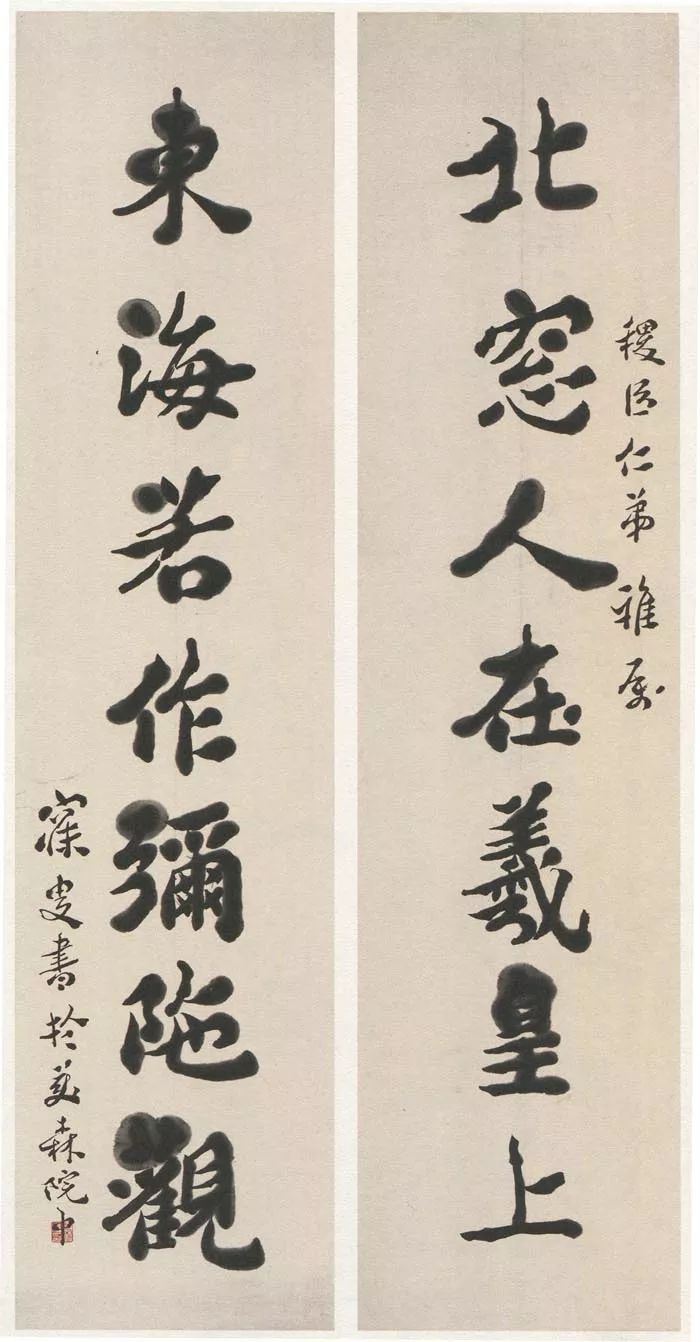 北窓人在羲皇上
稷臣仁弟 雅属
東海若作彌陁觀
寐叟書於美森院中